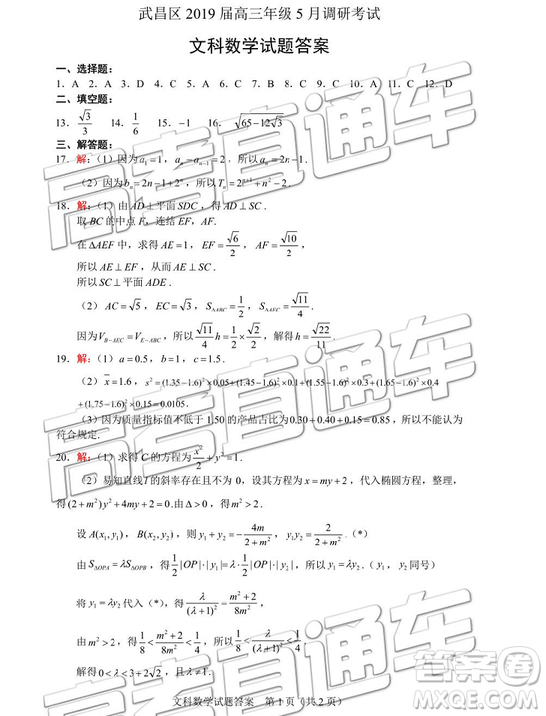 武昌区 2019 届高三年级 5 月调研考试
文科数学试题答案
一、选择题：
1．A 2．A 3．D 4．C 5．C 6．B 7．B 8．A 9．C 10．A 11．C 12．D
二、填空题：
13．√3/3 14．1/6 15．−1 16．√(65−12√3)
三、解答题：
17．解：（1）因为 a₁=1，aₙ−aₙ₋₁=2，所以 aₙ=2n−1．
（2）因为 bₙ=2n−1+2ⁿ，所以 Tₙ=2ⁿ⁺¹+n²−2．
18．解：（1）由 AD⊥平面 SDC，得 AD⊥SC．
取 BC 的中点 F，连结 EF，AF．
在 ΔAEF 中，求得 AE=1，EF=√6/2，AF=√10/2，
所以 AE⊥EF，从而 AE⊥SC．
所以 SC⊥平面 ADE．
（2）AC=√5，EC=√3，S_ΔABC=1/2，S_ΔAEC=√11/4．
因为 V_B−AEC=V_E−ABC，所以 √11/4 h=1/2×√2/2，解得 h=√22/11．
19．解：（1）a=0.5，b=1，c=1.5．
（2）x̄=1.6，s²=(1.35−1.6)²×0.05+(1.45−1.6)²×0.1+(1.55−1.6)²×0.3+(1.65−1.6)²×0.4
+(1.75−1.6)²×0.15=0.0105．
（3）因为质量指标值不低于 1.50 的产品占比为 0.30+0.40+0.15=0.85，所以不能认为
符合规定．
20．解：（1）求得 C 的方程为 x²/2+y²=1．
（2）易知直线 l 的斜率存在且不为 0，设其方程为 x=my+2，代入椭圆方程，整理，
得 (2+m²)y²+4my+2=0．由 Δ>0，得 m²>2．
设 A(x₁,y₁)，B(x₂,y₂)，则 y₁+y₂=−4m/(2+m²)，y₁y₂=2/(2+m²)．(*)
由 S_ΔOPA=λS_ΔOPB，得 1/2|OP|·|y₁|=λ·1/2|OP|·|y₂|，所以 y₁=λy₂．（y₁，y₂ 同号）
将 y₁=λy₂ 代入（*），得 λ/(λ+1)²=(m²+2)/8m²．
由 m²>2，得 1/8<(m²+2)/8m²<1/4，所以 1/8<λ/(λ+1)²<1/4．
解得 0<λ<3+2√2，且 λ≠1．
文科数学试题答案 第 1 页（共 2 页）
高考直通车
高考直通车
高考直通车
答案圈
MXQE.COM